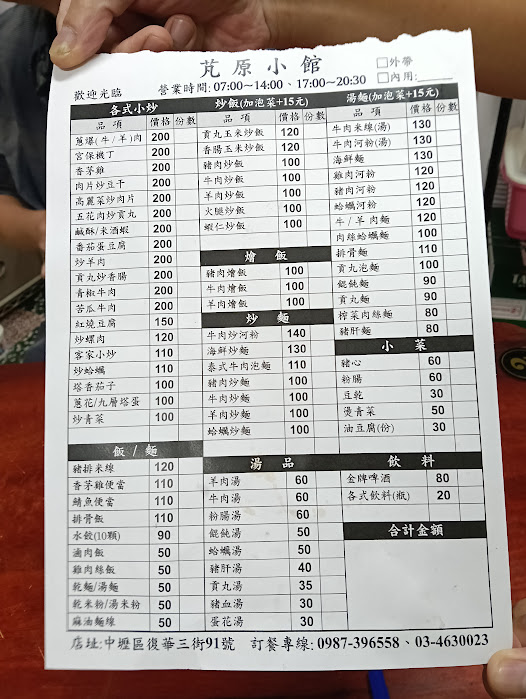 芃原小館
□外帶
歡迎光臨 營業時間: 07:00~14:00、17:00~20:30 □內用:______
各式小炒
品項 價格 份數
蔥爆(牛/羊)肉 200
宮保機丁 200
香茅雞 200
肉片炒豆干 200
高麗菜炒肉片 200
五花肉炒貢丸 200
鹹酥/米酒蝦 200
番茄蛋豆腐 200
炒羊肉 200
貢丸炒香腸 200
青椒牛肉 200
苦瓜牛肉 200
紅燒豆腐 150
炒螺肉 120
客家小炒 110
炒蛤蠣 110
塔香茄子 100
蔥花/九層塔蛋 100
炒青菜 100
飯/麵
豬排米線 120
香茅雞便當 110
鯖魚便當 110
排骨飯 110
水餃(10顆) 90
滷肉飯 50
雞肉絲飯 50
乾麵/湯麵 50
乾米粉/湯米粉 50
麻油麵線 50
炒飯(加泡菜+15元)
品項 價格 份數
貢丸玉米炒飯 120
香腸玉米炒飯 120
豬肉炒飯 100
牛肉炒飯 100
羊肉炒飯 100
火腿炒飯 100
蝦仁炒飯 100
燴飯
豬肉燴飯 100
牛肉燴飯 100
羊肉燴飯 100
炒麵
牛肉炒河粉 140
海鮮炒麵 130
泰式牛肉泡麵 110
豬肉炒麵 100
牛肉炒麵 100
羊肉炒麵 100
蛤蠣炒麵 100
湯品
羊肉湯 60
牛肉湯 60
粉腸湯 60
餛飩湯 50
蛤蠣湯 50
豬肝湯 40
貢丸湯 35
豬血湯 30
蛋花湯 30
湯麵(加泡菜+15元)
品項 價格 份數
牛肉米線(湯) 130
牛肉河粉(湯) 130
海鮮麵 130
雞肉河粉 120
豬肉河粉 120
蛤蠣河粉 120
牛/羊肉麵 120
肉絲蛤蠣麵 120
排骨麵 110
貢丸泡麵 100
餛飩麵 90
貢丸麵 90
榨菜肉絲麵 80
豬肝麵 80
小菜
豬心 60
粉腸 60
豆乾 30
燙青菜 50
油豆腐(份) 30
飲料
金牌啤酒 80
各式飲料(瓶) 20
合計金額
店址:中壢區復華三街91號 訂餐專線: 0987-396558、03-4630023